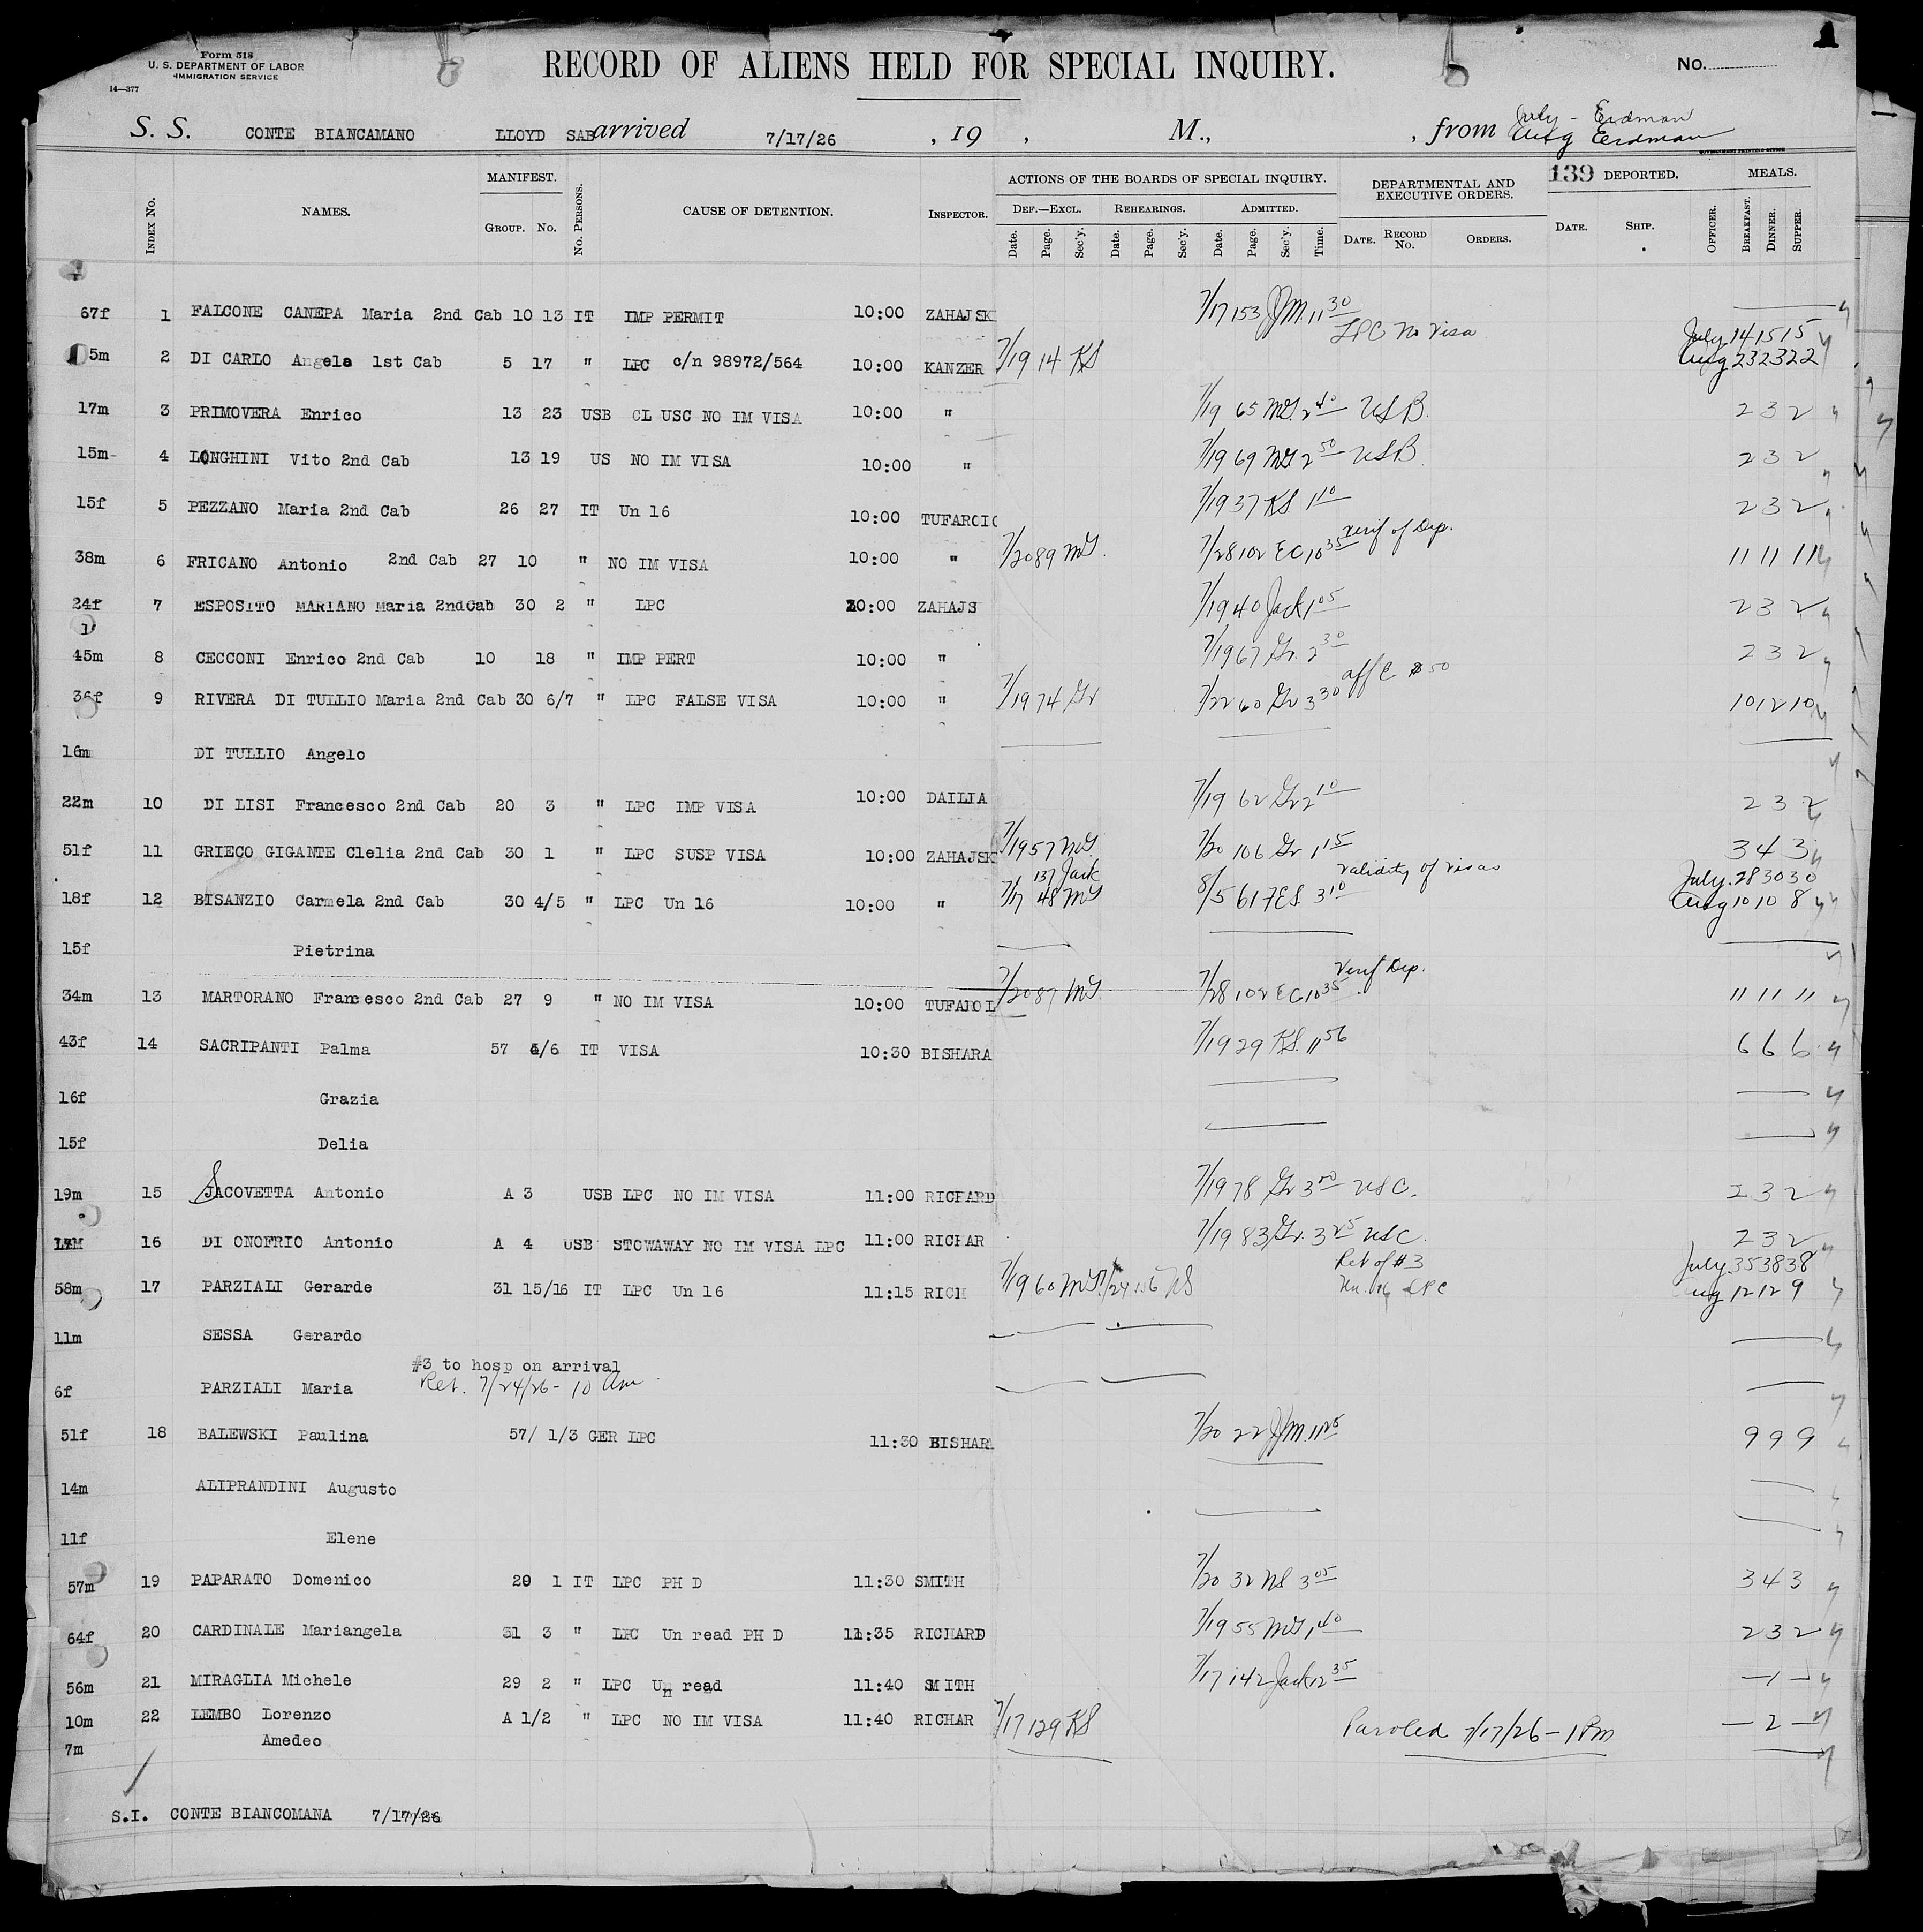 Form 518
U. S. DEPARTMENT OF LABOR
IMMIGRATION SERVICE
14—377
RECORD OF ALIENS HELD FOR SPECIAL INQUIRY.
No.
1
S. S. CONTE BIANCAMANO LLOYD SAB arrived 7/17/26 , 19 , M., , from July - Erdman
Aug Eerdman
GOVERNMENT PRINTING OFFICE
INDEX NO. NAMES. MANIFEST. GROUP. NO. NO. PERSONS. CAUSE OF DETENTION. INSPECTOR. ACTIONS OF THE BOARDS OF SPECIAL INQUIRY. DEF.—EXCL. REHEARINGS. ADMITTED. DEPARTMENTAL AND EXECUTIVE ORDERS. 139 DEPORTED. MEALS.
Date. Page. Sec'y. Date. Page. Sec'y. Date. Page. Sec'y. Time. DATE. RECORD NO. ORDERS. DATE. SHIP. OFFICER. BREAKFAST. DINNER. SUPPER.
67f 1 FALCONE CANEPA Maria 2nd Cab 10 13 IT IMP PERMIT 10:00 ZAHAJSK 7/17 153 JM. 11 30
LPC no visa July 14 15 15
5m 2 DI CARLO Angelo 1st Cab 5 17 " LPC c/n 98972/564 10:00 KANZER 7/19 14 KS Aug 23 23 22
17m 3 PRIMOVERA Enrico 13 23 USB CL USC NO IM VISA 10:00 " 7/19 65 MG 2 40 USB. 2 3 2
15m- 4 LONGHINI Vito 2nd Cab 13 19 US NO IM VISA 10:00 " 7/19 69 MG 2 50 USB 2 3 2
15f 5 PEZZANO Maria 2nd Cab 26 27 IT Un 16 10:00 TUFAROIC 7/19 37 KS 1 10 2 3 2
38m 6 FRICANO Antonio 2nd Cab 27 10 " NO IM VISA 10:00 " 7/20 89 MG. 7/28 102 EC 10 35 verif of Dep. 11 11 11
24f 7 ESPOSITO MARIANO Maria 2ndCab 30 2 " LPC 10:00 ZAHAJS 7/19 40 Jack 1 05 2 3 2
45m 8 CECCONI Enrico 2nd Cab 10 18 " IMP PERT 10:00 " 7/19 67 Gr. 2 30 2 3 2
36f 9 RIVERA DI TULLIO Maria 2nd Cab 30 6/7 " LPC FALSE VISA 10:00 " 7/19 74 Gr 7/22 60 Gr 3 30 aff C $50 10 12 10
16m DI TULLIO Angelo
22m 10 DI LISI Francesco 2nd Cab 20 3 " LPC IMP VISA 10:00 DAILIA 7/19 62 Gr 2 10 2 3 2
51f 11 GRIECO GIGANTE Clelia 2nd Cab 30 1 " LPC SUSP VISA 10:00 ZAHAJSK 7/19 57 MG. 7/20 106 Gr 1 15 3 4 3
137 Jack validity of visas July 28 30 30
18f 12 BISANZIO Carmela 2nd Cab 30 4/5 " LPC Un 16 10:00 " 7/17 48 MG 8/5 61 FES. 3 10 Aug 10 10 8
15f Pietrina
34m 13 MARTORANO Francesco 2nd Cab 27 9 " NO IM VISA 10:00 TUFAROL 7/20 87 MG 7/28 102 EC 10 35 Verif Dep. 11 11 11
43f 14 SACRIPANTI Palma 57 4/6 IT VISA 10:30 BISHARA 7/19 29 KS. 11 56 6 6 6
16f Grazia
15f Delia
19m 15 JACOVETTA Antonio A 3 USB LPC NO IM VISA 11:00 RICHARD 7/19 78 Gr 3 USC. 2 3 2
17M 16 DI ONOFRIO Antonio A 4 USB STOWAWAY NO IM VISA LPC 11:00 RICHAR 7/19 83 Gr. 3 25 USC. 2 3 2
Ret of #3 July 35 38 38
58m 17 PARZIALI Gerarde 31 15/16 IT LPC Un 16 11:15 RICH 7/19 60 MG. 7/24 NS Un. 16 LPC Aug 12 12 9
11m SESSA Gerardo
#3 to hosp on arrival
6f PARZIALI Maria Ret. 7/24/26 - 10 Am.
51f 18 BALEWSKI Paulina 57/ 1/3 GER LPC 11:30 BISHAR 7/20 22 JM. 11 25 9 9 9
14m ALIPRANDINI Augusto
11f Elene
57m 19 PAPARATO Domenico 29 1 IT LPC PH D 11:30 SMITH 7/20 32 NS 3 05 3 4 3
64f 20 CARDINALE Mariangela 31 3 " LPC Un read PH D 11:35 RICHARD 7/19 55 MG 1 40 2 3 2
56m 21 MIRAGLIA Michele 29 2 " LPC Un read 11:40 SMITH 7/17 142 Jack 12 35 — 1 —
10m 22 LEMBO Lorenzo A 1/2 " LPC NO IM VISA 11:40 RICHAR 7/17 129 KS Paroled 7/17/26 - 1 Pm — 2 —
7m Amedeo
S.I. CONTE BIANCOMANA 7/17/26